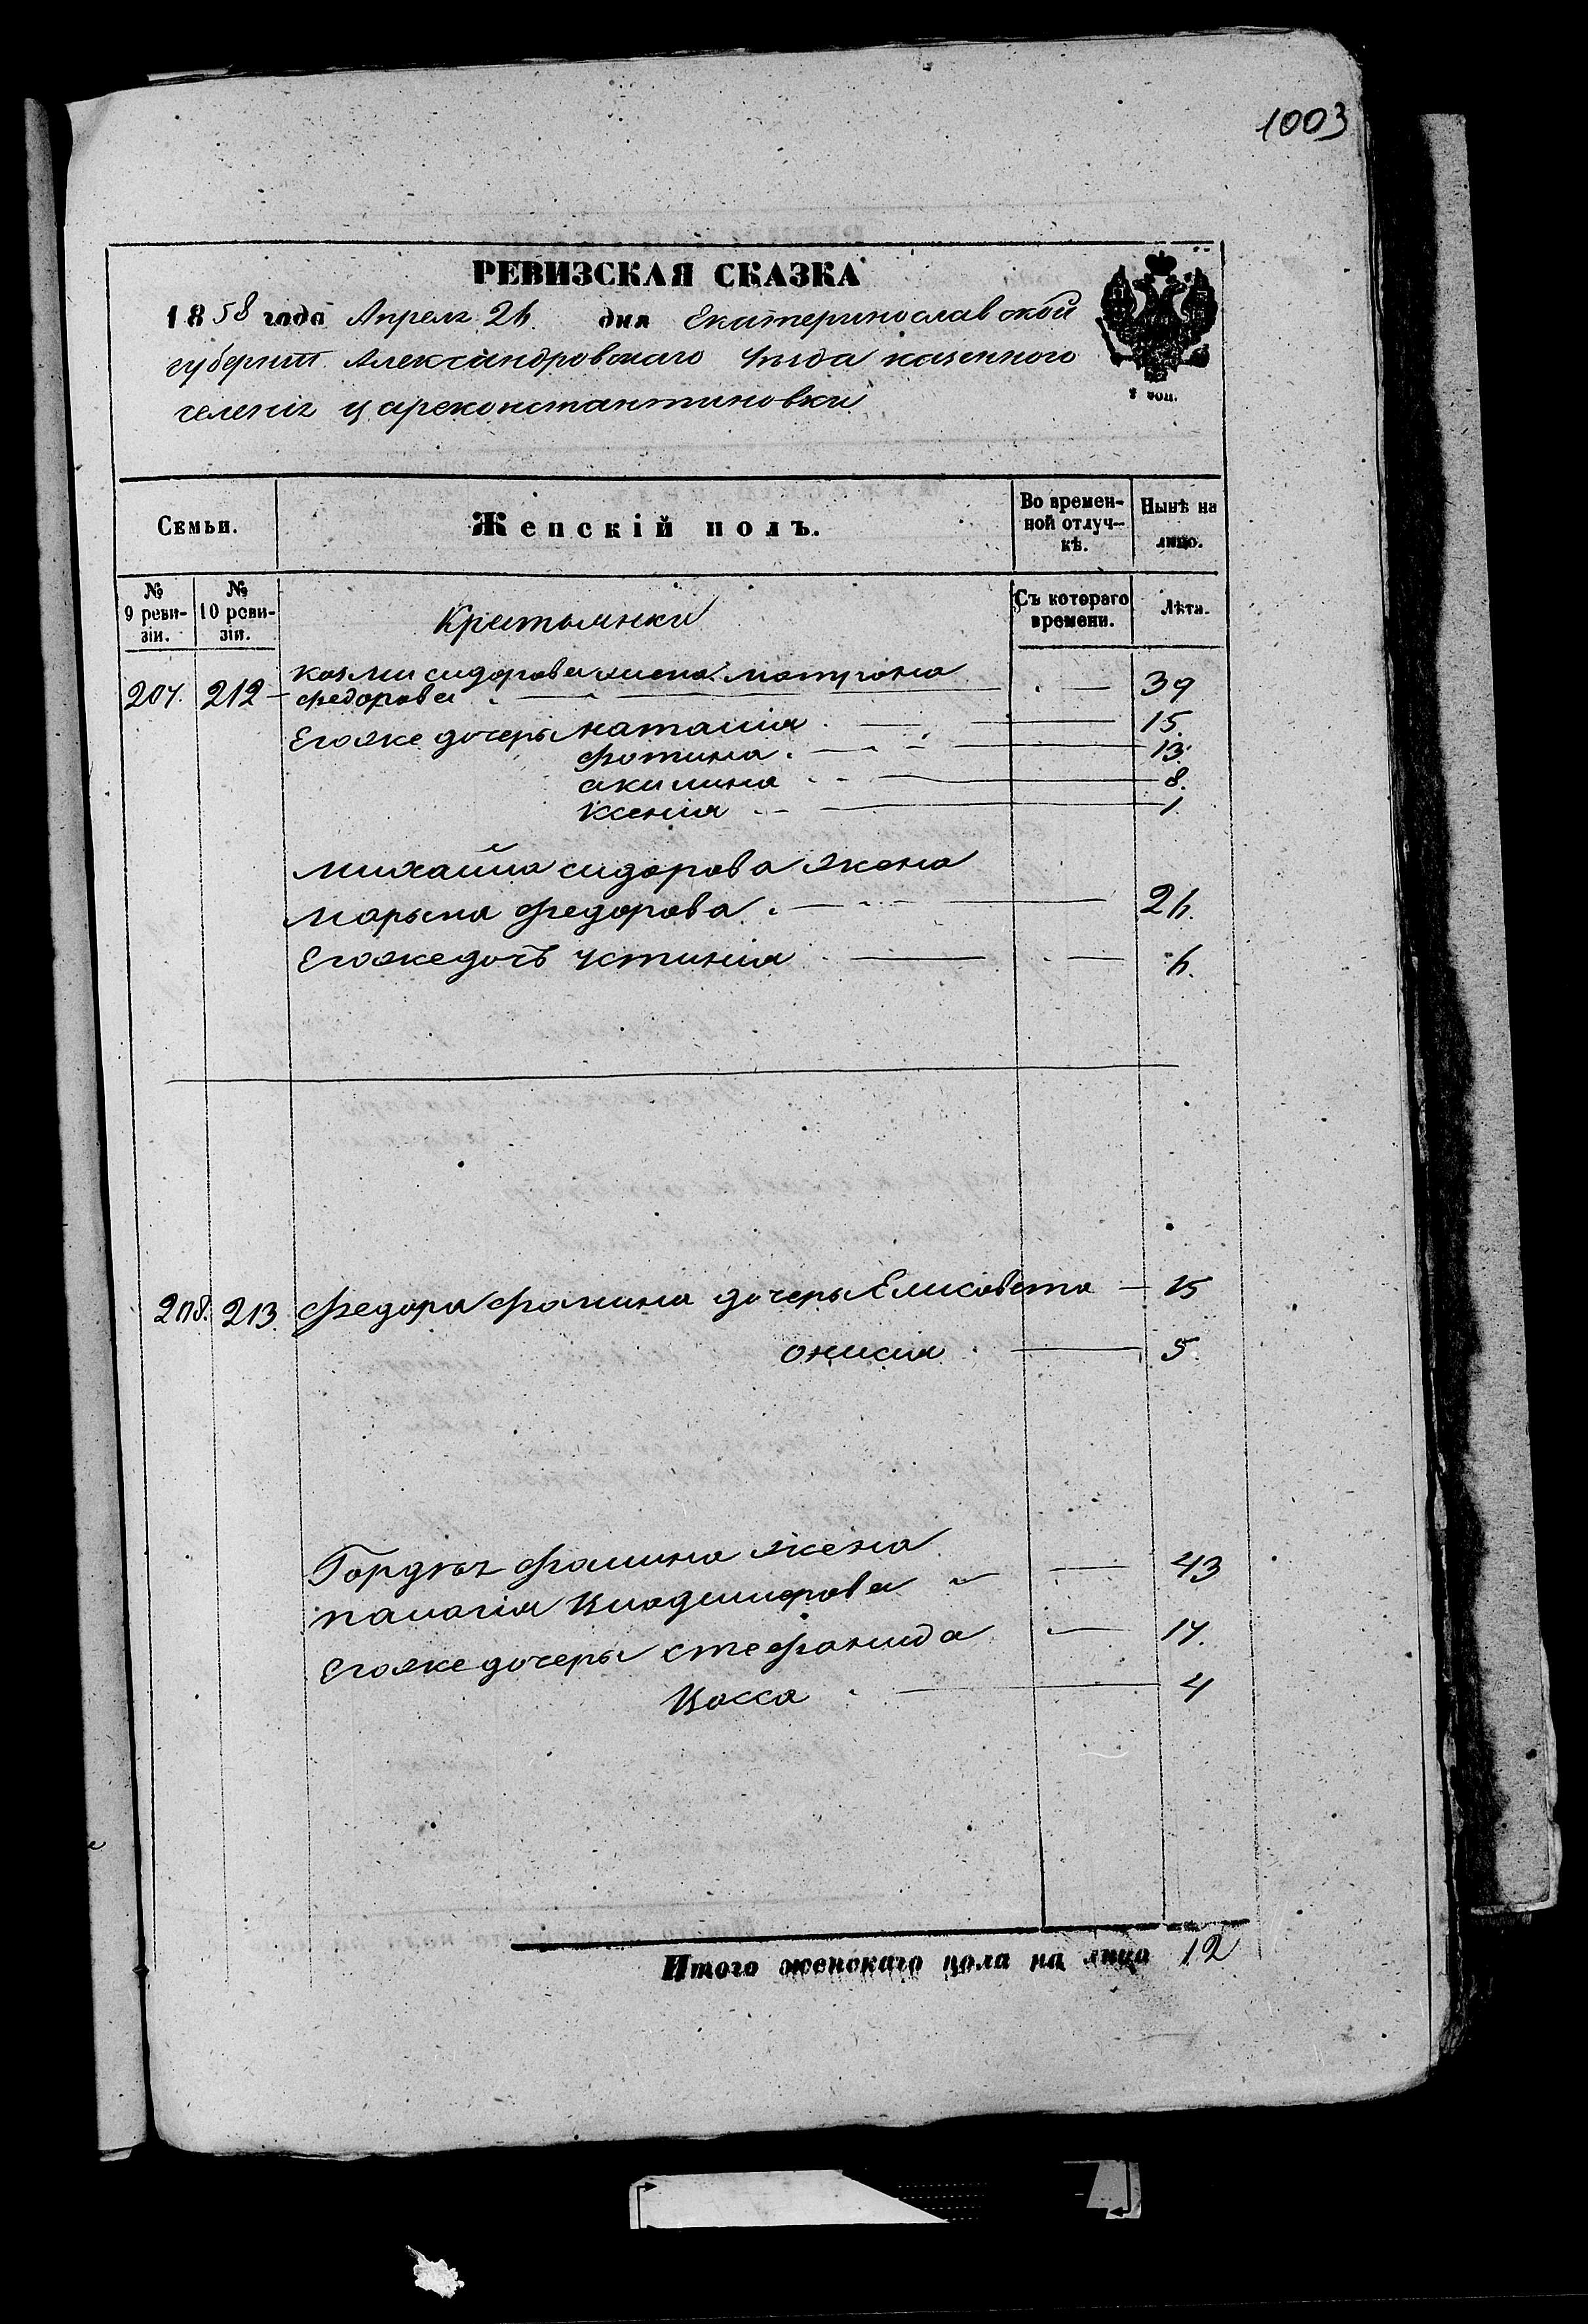 1003
РЕВИЗСКАЯ СКАЗКА
1858 года Апреля 26 дня Екатеринославской
губернии Александровскаго уезда казенного
селенія Цареконстантиновки
Семьи.
Женскій полъ.
Во времен-
ной отлуч-
кѣ.
Нынѣ на
лицо.
№
9 реви-
зіи.
№
10 реви-
зіи.
Крестьянки
Съ котораго
времени.
Лѣта.
козми сидорова жена матрона
207. 212 федорова 39
Егоже дочеры наталия 15.
фотина 13.
акилина 8.
ксения 1.
михайла сидорова жена
марьпа федорова 26.
Егоже дочъ устиния 6.
208. 213. федора фомина дочеры Елисовета 15
онисия 5.
Гордѣя фомина жена
палагия владимирова 43
Егоже дочеры стефанида 17.
Васса 4
Итого женскаго пола на лицо 12